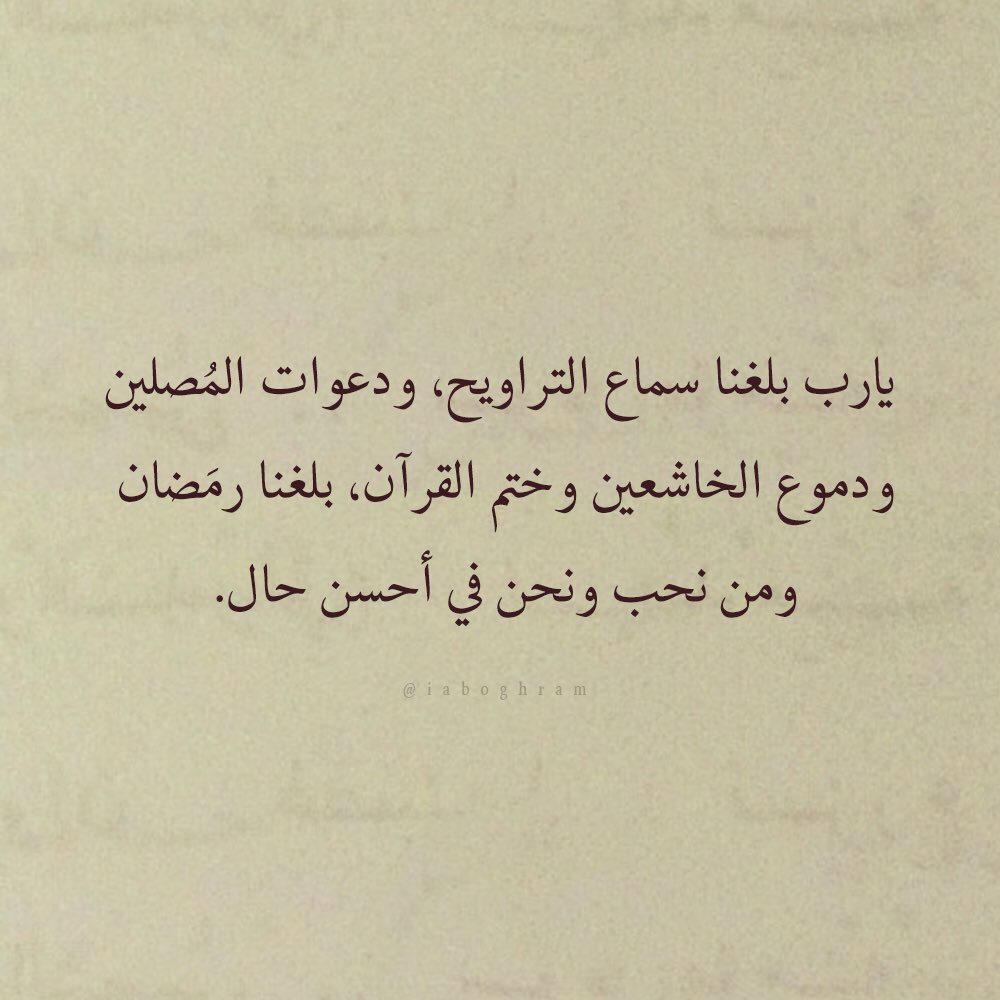 يارب بلغنا سماع التراويح، ودعوات المُصلين
ودموع الخاشعين وختم القرآن، بلغنا رمَضان
ومن نحب ونحن في أحسن حال.
@iaboghram